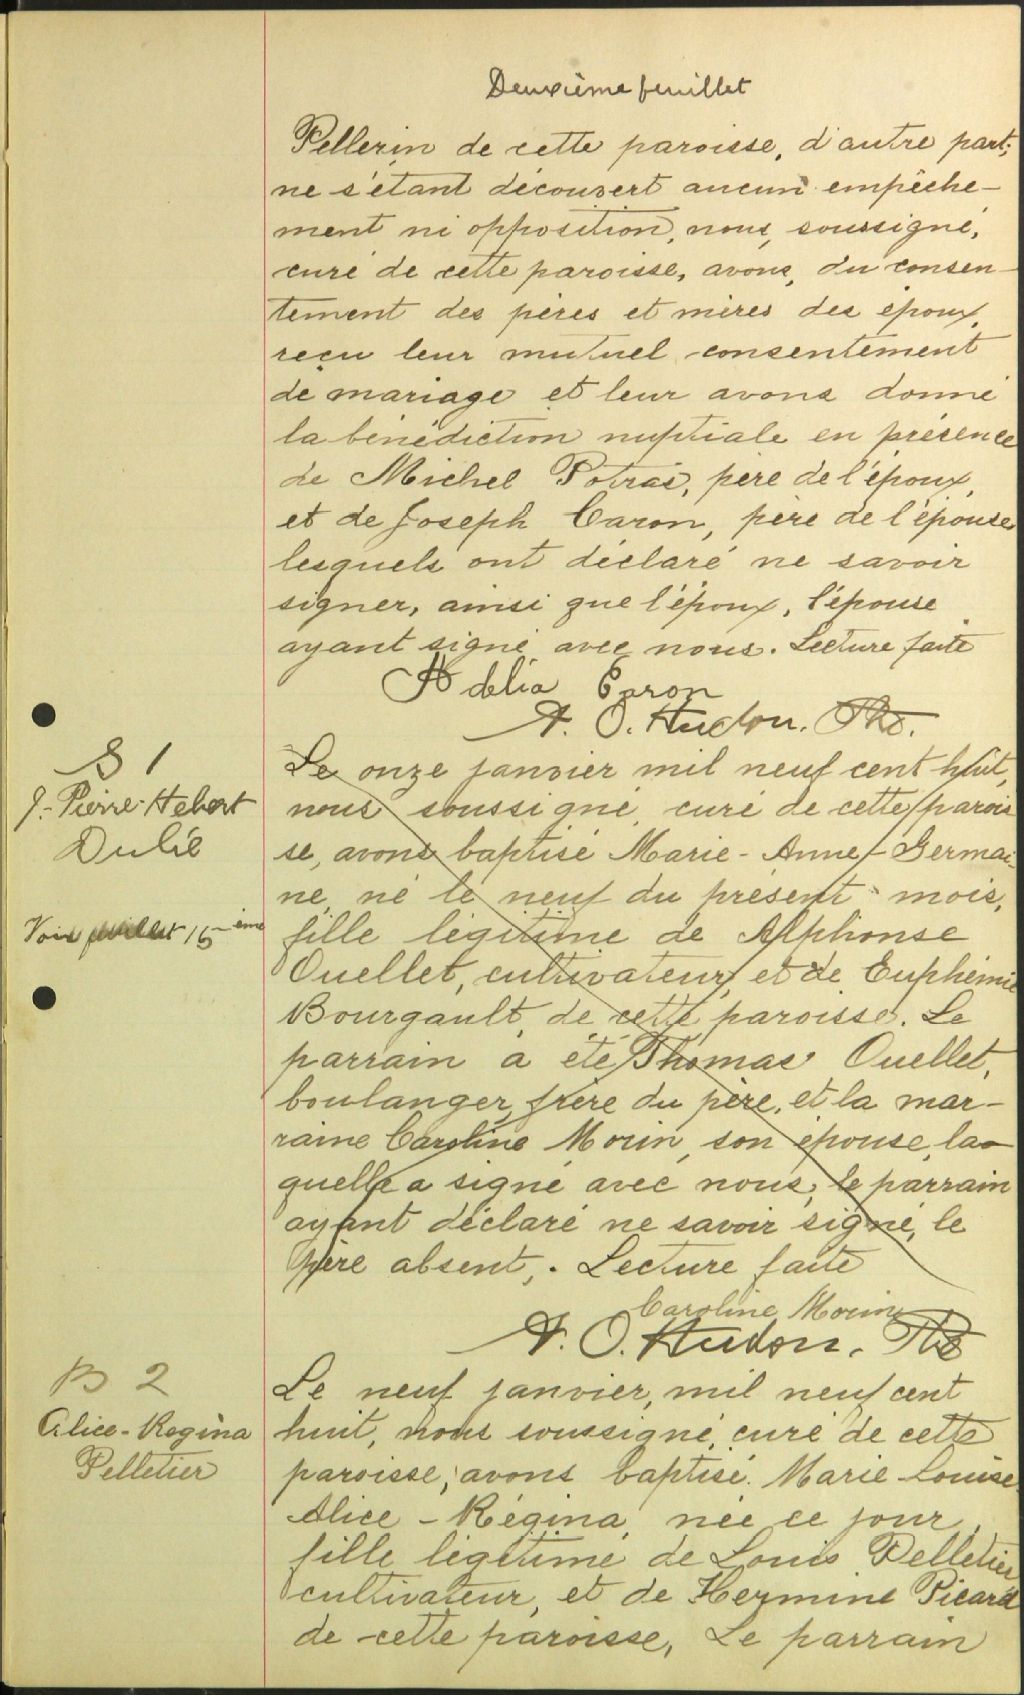 Deuxième feuillet
Pellerin de cette paroisse, d'autre part;
ne s'étant découvert aucun empêche-
ment ni opposition, nous, soussigné,
curé de cette paroisse, avons, du consen-
tement des pères et mères des époux,
reçu leur mutuel consentement
de mariage et leur avons donné
la bénédiction nuptiale en présence
de Michel Potras, père de l'époux,
et de Joseph Caron, père de l'épouse
lesquels ont déclaré ne savoir
signer, ainsi que l'époux, l'épouse
ayant signé avec nous. Lecture faite
Adélia Caron
A. O. Hudon, Ptre.
S 1
J.-Pierre-Hebert
Dubé
Voir feuillet 15-ième
Le onze janvier mil neuf cent huit,
nous soussigné, curé de cette parois
se, avons baptisé Marie-Anne-Germai-
ne, né le neuf du présent mois,
fille légitime de Alphonse
Ouellet, cultivateur, et de Euphémie
Bourgault, de cette paroisse. Le
parrain a été Thomas Ouellet,
boulanger, frère du père, et la mar-
raine Caroline Morin, son épouse, la-
quelle a signé avec nous, le parrain
ayant déclaré ne savoir signé, le
père absent,. Lecture faite
Caroline Morin
A. O. Hudon, Ptre
B 2
Alice-Regina
Pelletier
Le neuf janvier, mil neuf cent
huit, nous soussigné, curé de cette
paroisse, avons baptisé Marie Louise
Alice-Régina, née ce jour,
fille légitime de Louis Pelletier
cultivateur, et de Hermine Picard
de cette paroisse, Le parrain